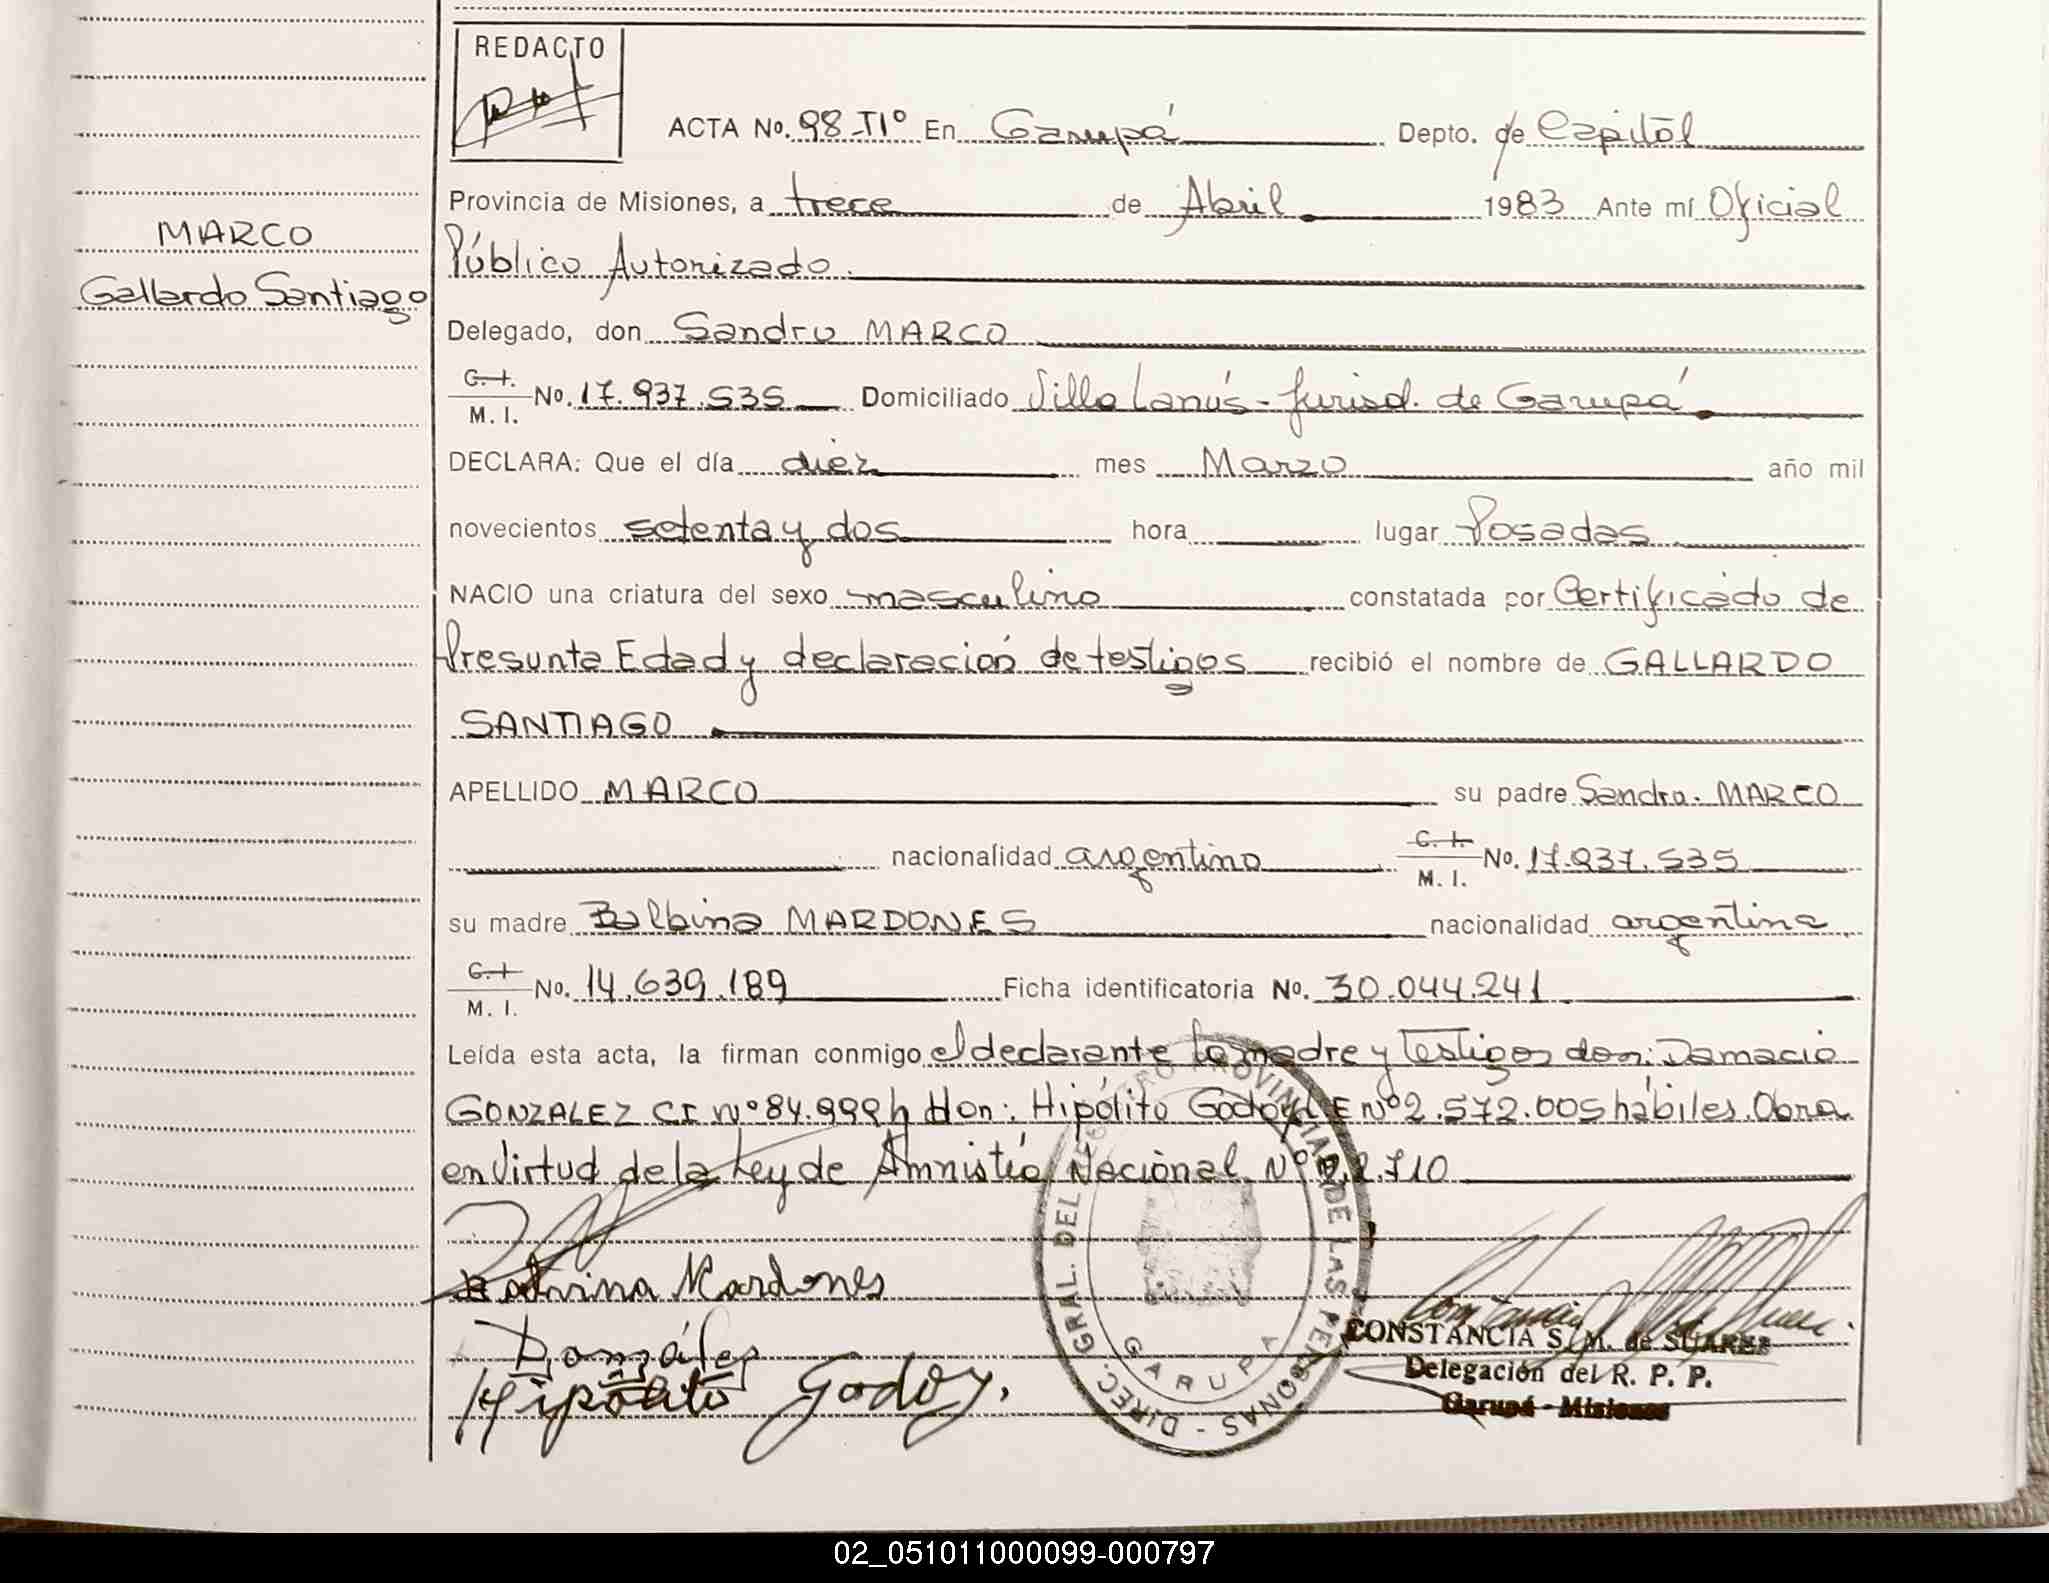 REDACTO
ACTA No. 98-Tº En Garupá Depto. de Capital
Provincia de Misiones, a trece de Abril 1983 Ante mí Oficial
MARCO
Público Autorizado.
Gallardo Santiago
Delegado, don Sandru MARCO
C.I. M. I. No. 17.937.535 Domiciliado Villa Lanús - Jurisd. de Garupá
DECLARA: Que el día diez mes Marzo año mil
novecientos setenta y dos hora lugar Posadas
NACIO una criatura del sexo masculino constatada por Certificado de
Presunta Edad y declaración de testigos recibió el nombre de GALLARDO
SANTIAGO
APELLIDO MARCO su padre Sandru MARCO
nacionalidad argentino C.I. M. I. No. 17.937.535
su madre Balbina MARDONES nacionalidad argentina
C.I. M. I. No. 14.639.189 Ficha identificatoria No. 30.044.241
Leída esta acta, la firman conmigo el declarante la madre y Testigos don: Damacio
GONZALEZ CI Nº 84.999 y don: Hipólito Godoy LE Nº 2.572.005 hábiles. Obra
en Virtud de la Ley de Amnistía Nacional Nº 22.710
Balbina Mardones
González
Hipólito Godoy.
DIREC. GRAL. DEL REGISTRO PROVINCIAL DE LAS PERSONAS -
GARUPA
CONSTANCIA S. M. de SUAREZ
Delegación del R. P. P.
Garupá - Misiones
02_051011000099-000797